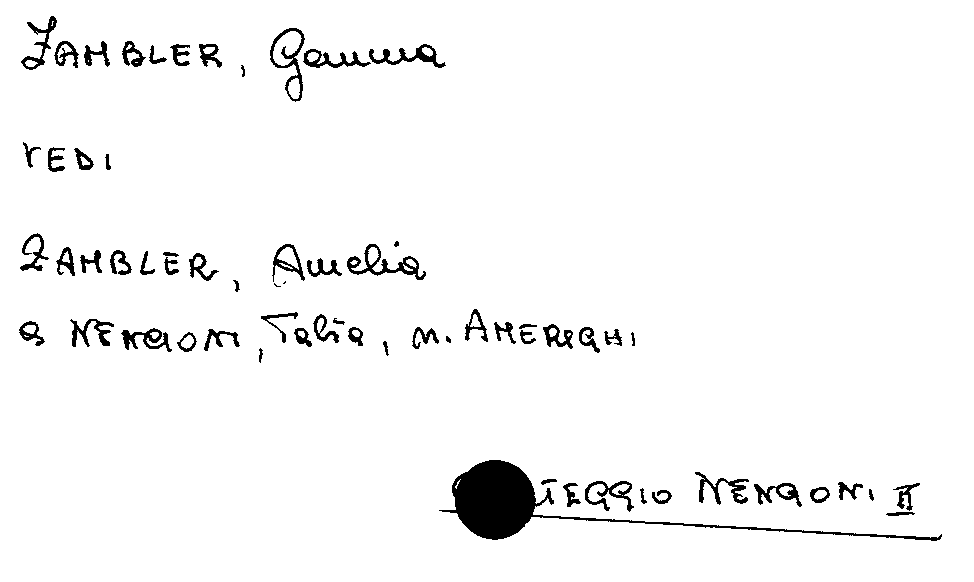 ZAMBLER, Gemma
VEDI
ZAMBLER, Amelia
a NENCIONI, Talia, n. AMERIGHI
TEGGIO NENCIONI II